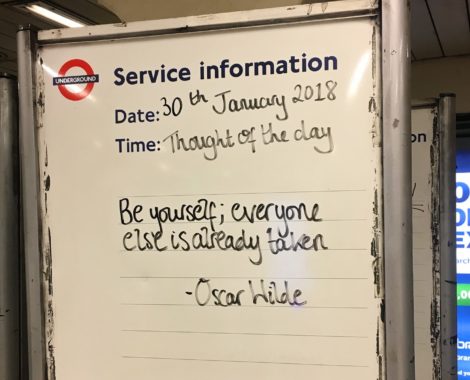 UNDERGROUND
Service information
Date: 30th January 2018
Time: Thought of the day
Be yourself; everyone
else is already taken
- Oscar Wilde